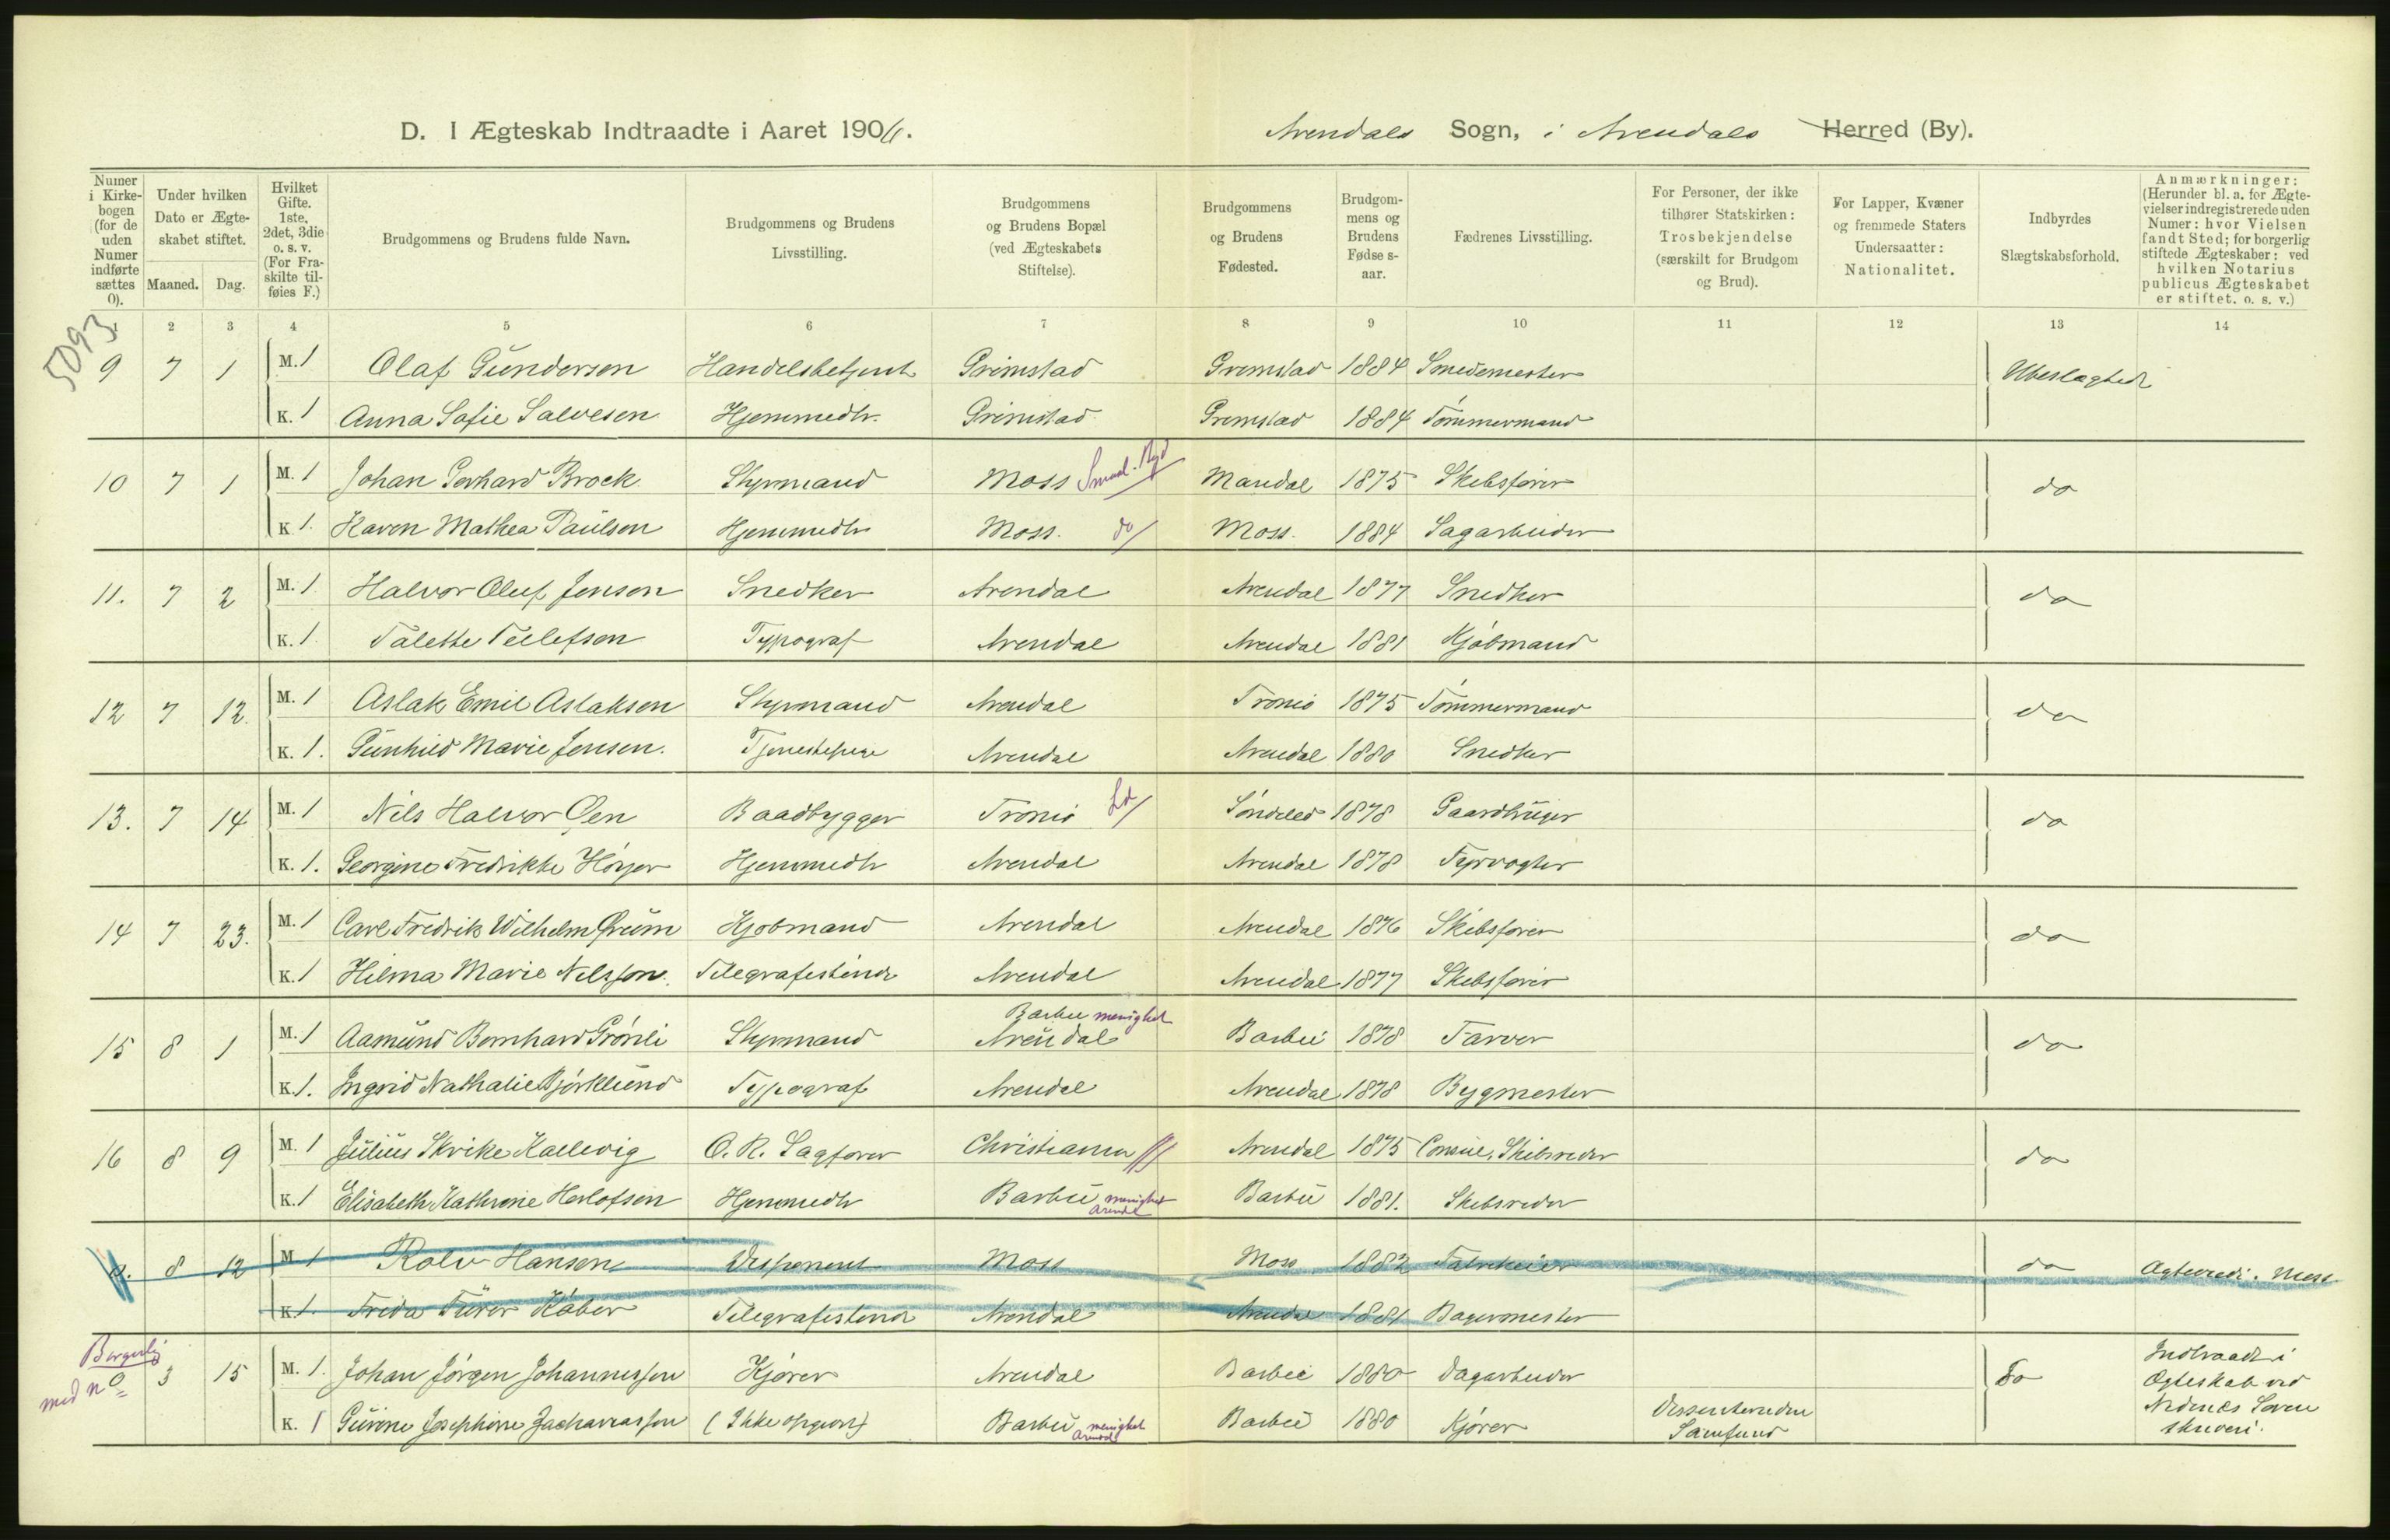 D. I Ægteskab Indtraadte i Aaret 190
Arendals Sogn, i Arendals Herred (By).
Numer i Kirkebogen (for de uden Numer indførte sættes 0).
Under hvilken Dato er Ægteskabet stiftet.
Maaned. Dag.
Hvilket Gifte. 1ste, 2det, 3die o. s. v. (For Fraskilte tilføies F.)
Brudgommens og Brudens fulde Navn.
Brudgommens og Brudens Livsstilling.
Brudgommens og Brudens Bopæl (ved Ægteskabets Stiftelse).
Brudgommens og Brudens Fødested.
Brudgommens og Brudens Fødselsaar.
Fædrenes Livsstilling.
For Personer, der ikke tilhører Statskirken: Trosbekjendelse (særskilt for Brudgom og Brud).
For Lapper, Kvæner og fremmede Staters Undersaatter: Nationalitet.
Indbyrdes Slægtskabsforhold.
Anmærkninger: (Herunder bl. a. for Ægtevielser indregistrerede uden Numer: hvor Vielsen fandt Sted; for borgerlig stiftede Ægteskaber: ved hvilken Notarius publicus Ægteskabet er stiftet. o. s. v.)
2 3 4 5 6 7 8 9 10 11 12 13 14
5093
9 7 1 M. 1 Olaf Gundersen Handelsbetjent Grimstad Grimstad 1884 Smedemester Ubeslægtede
K. 1 Anna Sofie Salvesen Hjemmedtr. Grimstad Grimstad 1884 Tømmermand
10 7 1 M. 1 Johan Gerhard Brock Styrmand Moss Smaal. Mandal 1875 Skibsfører do
K 1. Karen Mathea Paulsen Hjemmedtr Moss. do Moss. 1884 Sagarbeider
11. 7 2 M. 1 Halvor Oluf Jensen Snedker Arendal Arendal 1877 Snedker do
K. 1. Talette Tellefsen Typograf Arendal Arendal 1881 Kjøbmand
12 7 12. M. 1 Aslak Emil Aslaksen Styrmand Arendal Tromø 1875 Tømmermand do
K. 1. Gunhild Marie Jensen. Tjenestepige Arendal Arendal 1880 Snedker
13. 7 14 M. 1 Nils Halvor Øen Baadbygger Tromø Ld Søndeled 1878 Gaardbruger do
K. 1. Georgine Fredrikke Høyer Hjemmedtr Arendal Arendal 1878 Fyrvogter
14 7 23. M. 1 Carl Fredrik Wilhelm Kjøbmand Arendal Arendal 1876 Skibsfører do
K. 1 Hilma Marie Nilsson. Telegrafistinde Arendal Arendal 1877 Skibsfører
Barbu menighet
15 8 1 M. 1 Aamund Bernhard Grønli Styrmand Arendal Barbu 1878 Farver do
K. 1. Ingrid Nathalie Bjørklund Typograf Arendal Arendal 1878 Bygmester
16 8 9 M. 1 Julius Skrike Kallevig O. R. Sagfører Christiania Arendal 1875 Consul, Skibsreder do
K. 1 Elisabeth Kathrine Herlofsen Hjemmedtr Barbu menighet Arendal Barbu 1881. Skibsreder
8 12 M 1 Rolv Hansen Disponent Moss Moss 1882 do Moss
K 1. Frida Köber Telegrafistinde Arendal Arendal 1881 Bagermester
Borgerlig
med nº 0 3 15 M. 1. Johan Jørgen Johannessen Kjører Arendal Barbu 1880 Dagarbeider Do Indtraadt i
Ægteskab ved
Nedenæs Soren
skriveri.
K. 1 Gurine Josephine Zachariassen (Ikke opgiven) Barbu menighet Arendal Barbu 1880 Kjører Dissenteredne
Samfund